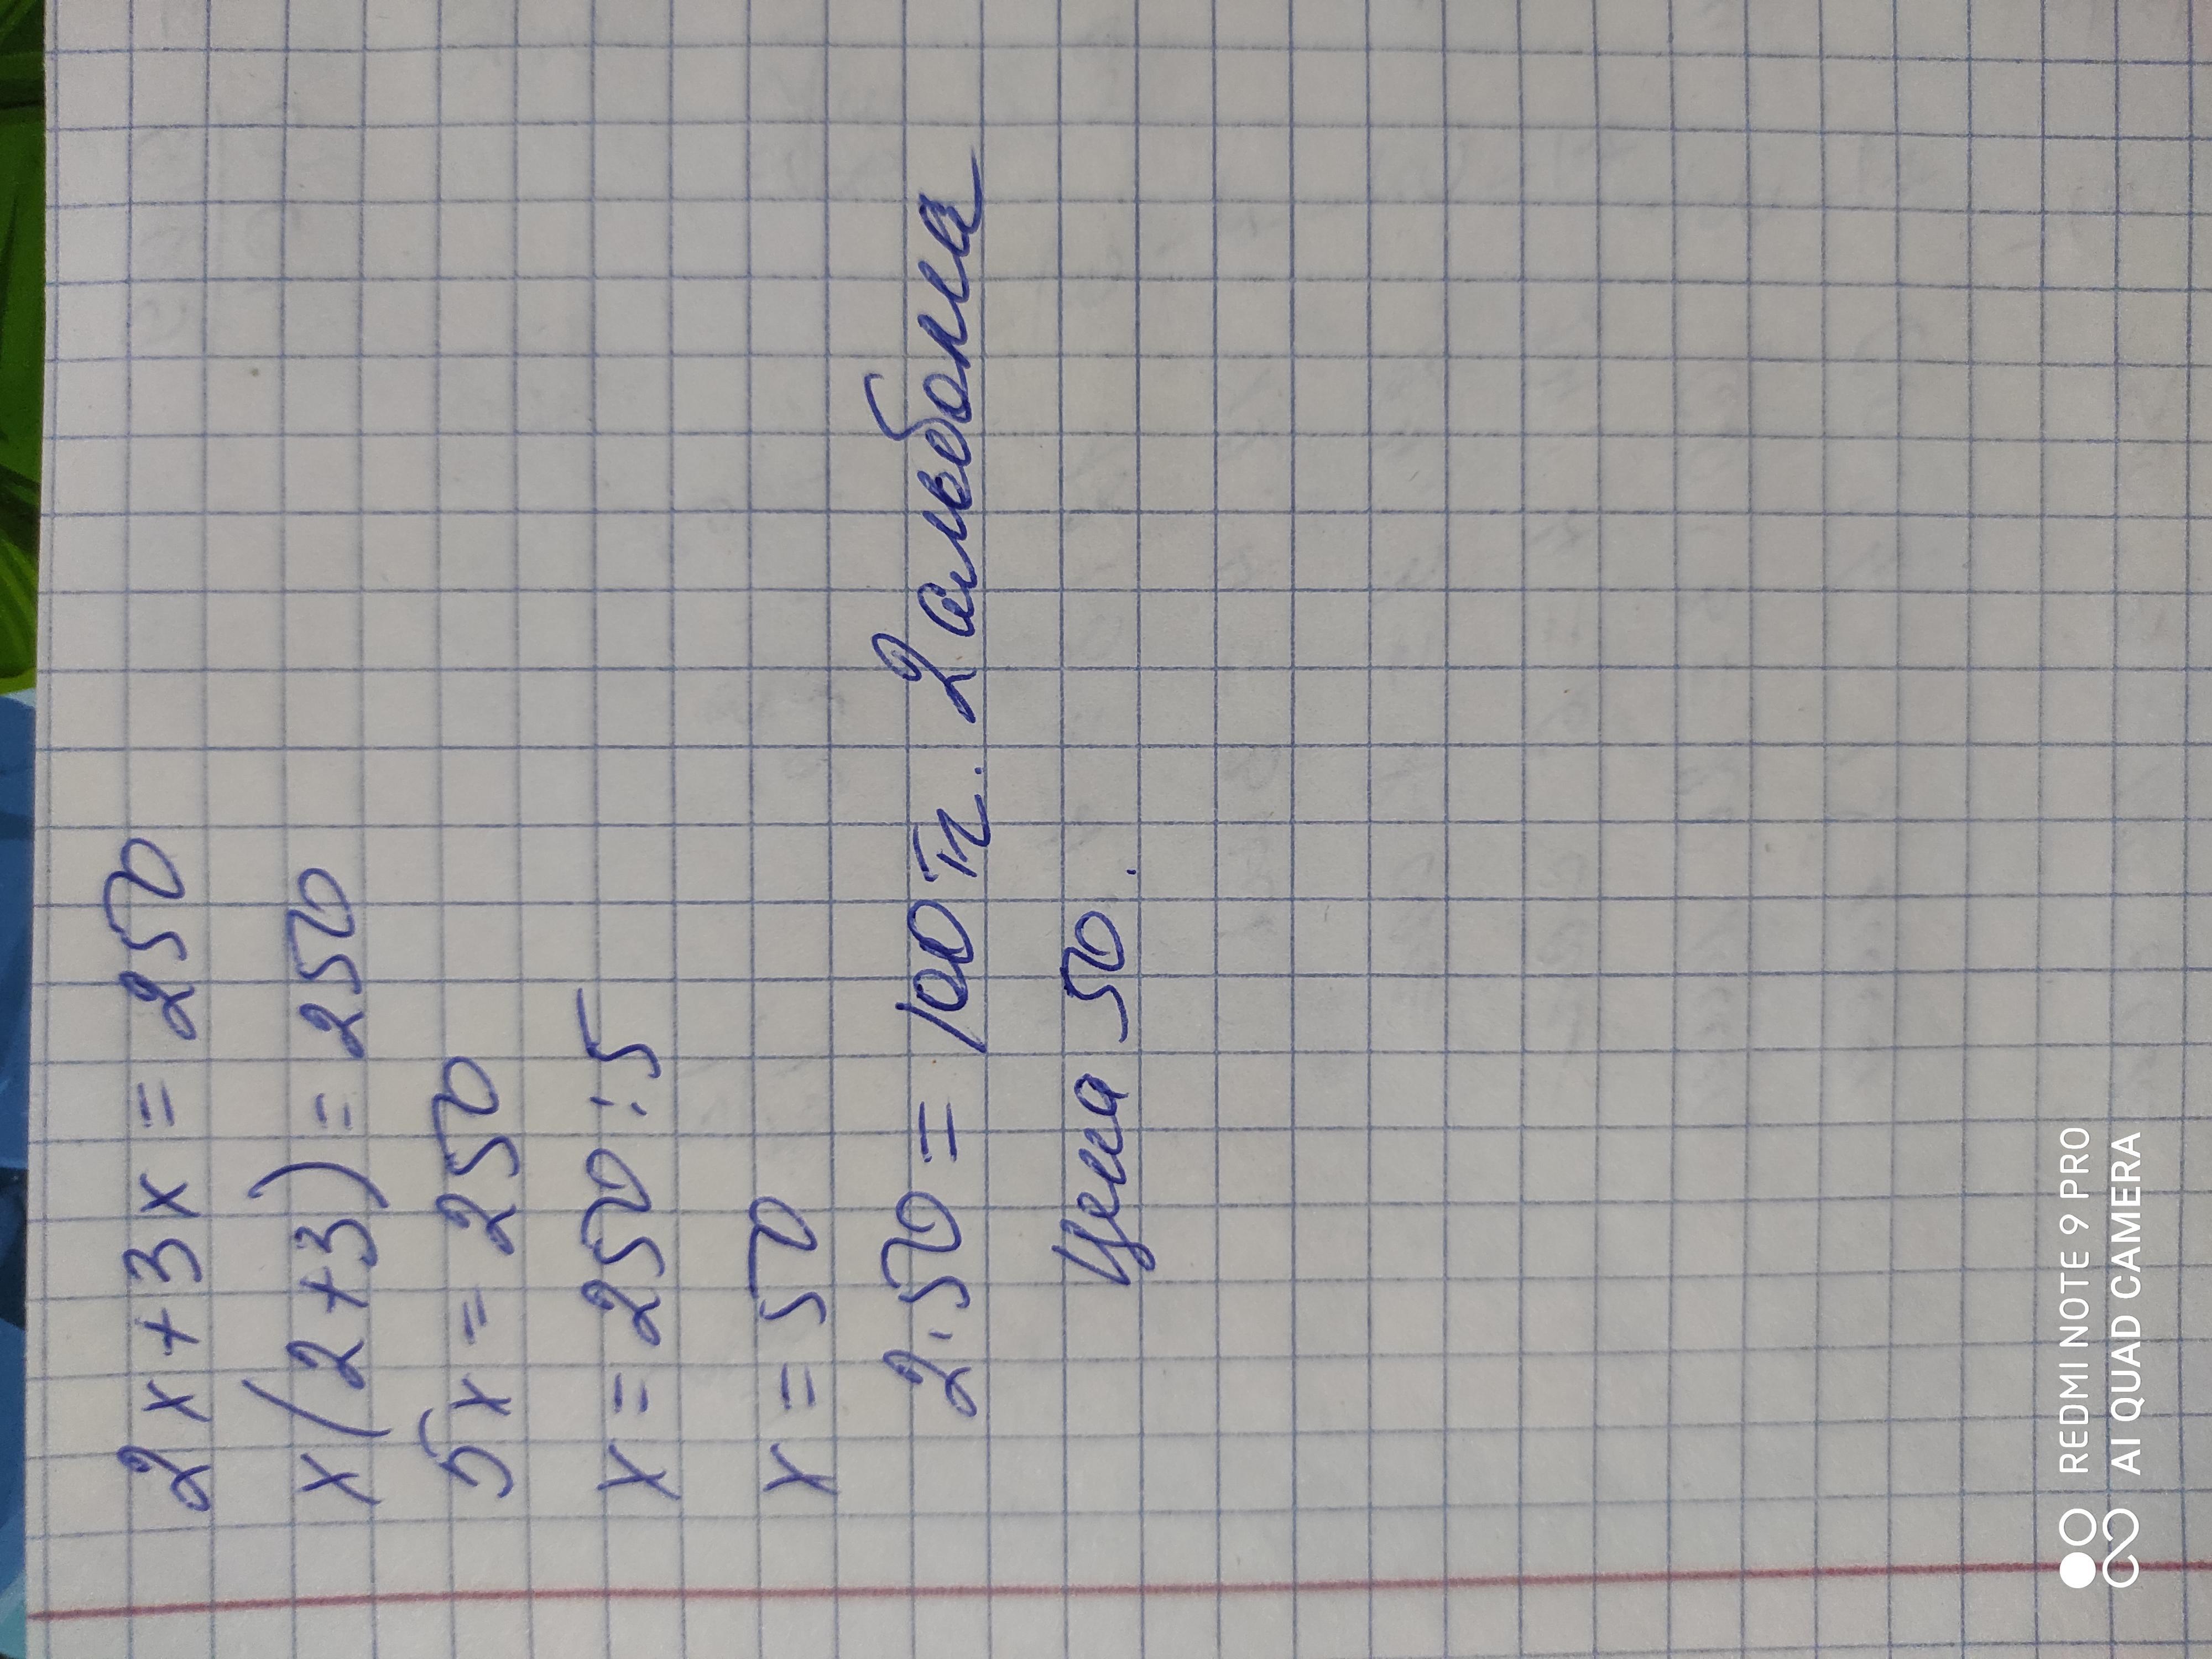 2x+3x=250
x(2+3)=250
5x=250
x=250:5
x=50
2·50=100тг. 2 альбома
Цена 50.
REDMI NOTE 9 PRO
AI QUAD CAMERA